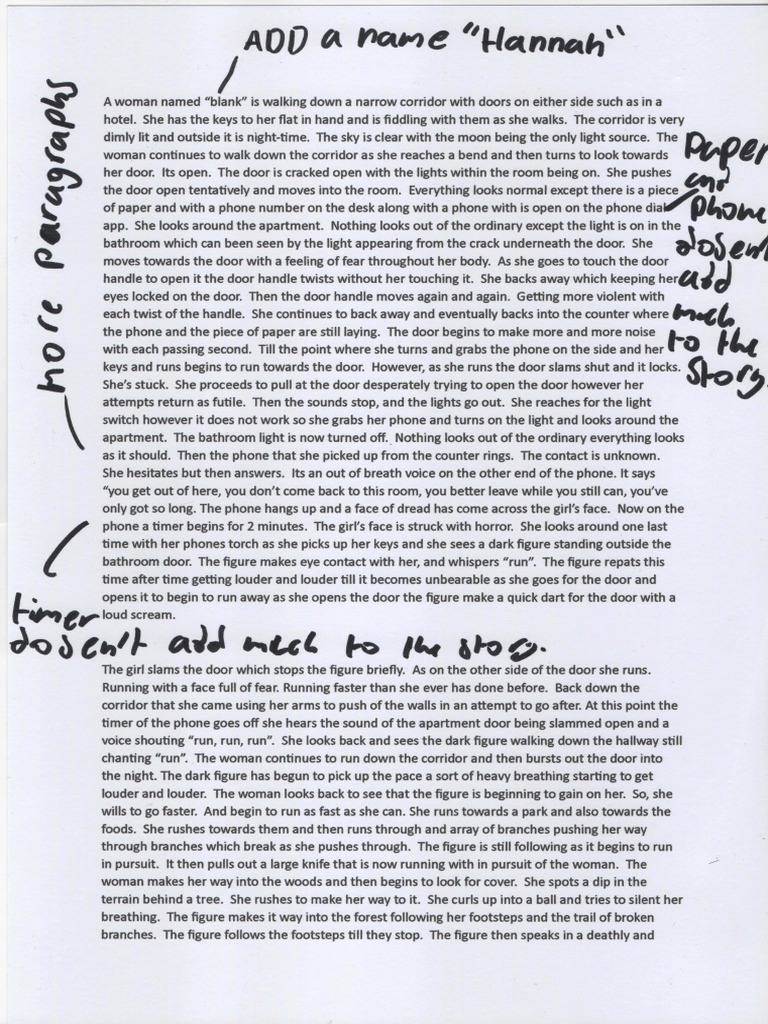 ADD a name "Hannah"
A woman named "blank" is walking down a narrow corridor with doors on either side such as in a
hotel. She has the keys to her flat in hand and is fiddling with them as she walks. The corridor is very
dimly lit and outside it is night-time. The sky is clear with the moon being the only light source. The
woman continues to walk down the corridor as she reaches a bend and then turns to look towards
her door. Its open. The door is cracked open with the lights within the room being on. She pushes
the door open tentatively and moves into the room. Everything looks normal except there is a piece
of paper and with a phone number on the desk along with a phone with is open on the phone dial
app. She looks around the apartment. Nothing looks out of the ordinary except the light is on in the
bathroom which can been seen by the light appearing from the crack underneath the door. She
moves towards the door with a feeling of fear throughout her body. As she goes to touch the door
handle to open it the door handle twists without her touching it. She backs away which keeping her
eyes locked on the door. Then the door handle moves again and again. Getting more violent with
each twist of the handle. She continues to back away and eventually backs into the counter where
the phone and the piece of paper are still laying. The door begins to make more and more noise
with each passing second. Till the point where she turns and grabs the phone on the side and her
keys and runs begins to run towards the door. However, as she runs the door slams shut and it locks.
She's stuck. She proceeds to pull at the door desperately trying to open the door however her
attempts return as futile. Then the sounds stop, and the lights go out. She reaches for the light
switch however it does not work so she grabs her phone and turns on the light and looks around the
apartment. The bathroom light is now turned off. Nothing looks out of the ordinary everything looks
as it should. Then the phone that she picked up from the counter rings. The contact is unknown.
She hesitates but then answers. Its an out of breath voice on the other end of the phone. It says
"you get out of here, you don't come back to this room, you better leave while you still can, you've
only got so long. The phone hangs up and a face of dread has come across the girl's face. Now on the
phone a timer begins for 2 minutes. The girl's face is struck with horror. She looks around one last
time with her phones torch as she picks up her keys and she sees a dark figure standing outside the
bathroom door. The figure makes eye contact with her, and whispers "run". The figure repats this
time after time getting louder and louder till it becomes unbearable as she goes for the door and
opens it to begin to run away as she opens the door the figure make a quick dart for the door with a
loud scream.
more paragraphs
paper
and
phone
dosent
add
much
to the
story.
timer
dosen't add much to the story.
The girl slams the door which stops the figure briefly. As on the other side of the door she runs.
Running with a face full of fear. Running faster than she ever has done before. Back down the
corridor that she came using her arms to push of the walls in an attempt to go after. At this point the
timer of the phone goes off she hears the sound of the apartment door being slammed open and a
voice shouting "run, run, run". She looks back and sees the dark figure walking down the hallway still
chanting "run". The woman continues to run down the corridor and then bursts out the door into
the night. The dark figure has begun to pick up the pace a sort of heavy breathing starting to get
louder and louder. The woman looks back to see that the figure is beginning to gain on her. So, she
wills to go faster. And begin to run as fast as she can. She runs towards a park and also towards the
foods. She rushes towards them and then runs through and array of branches pushing her way
through branches which break as she pushes through. The figure is still following as it begins to run
in pursuit. It then pulls out a large knife that is now running with in pursuit of the woman. The
woman makes her way into the woods and then begins to look for cover. She spots a dip in the
terrain behind a tree. She rushes to make her way to it. She curls up into a ball and tries to silent her
breathing. The figure makes it way into the forest following her footsteps and the trail of broken
branches. The figure follows the footsteps till they stop. The figure then speaks in a deathly and